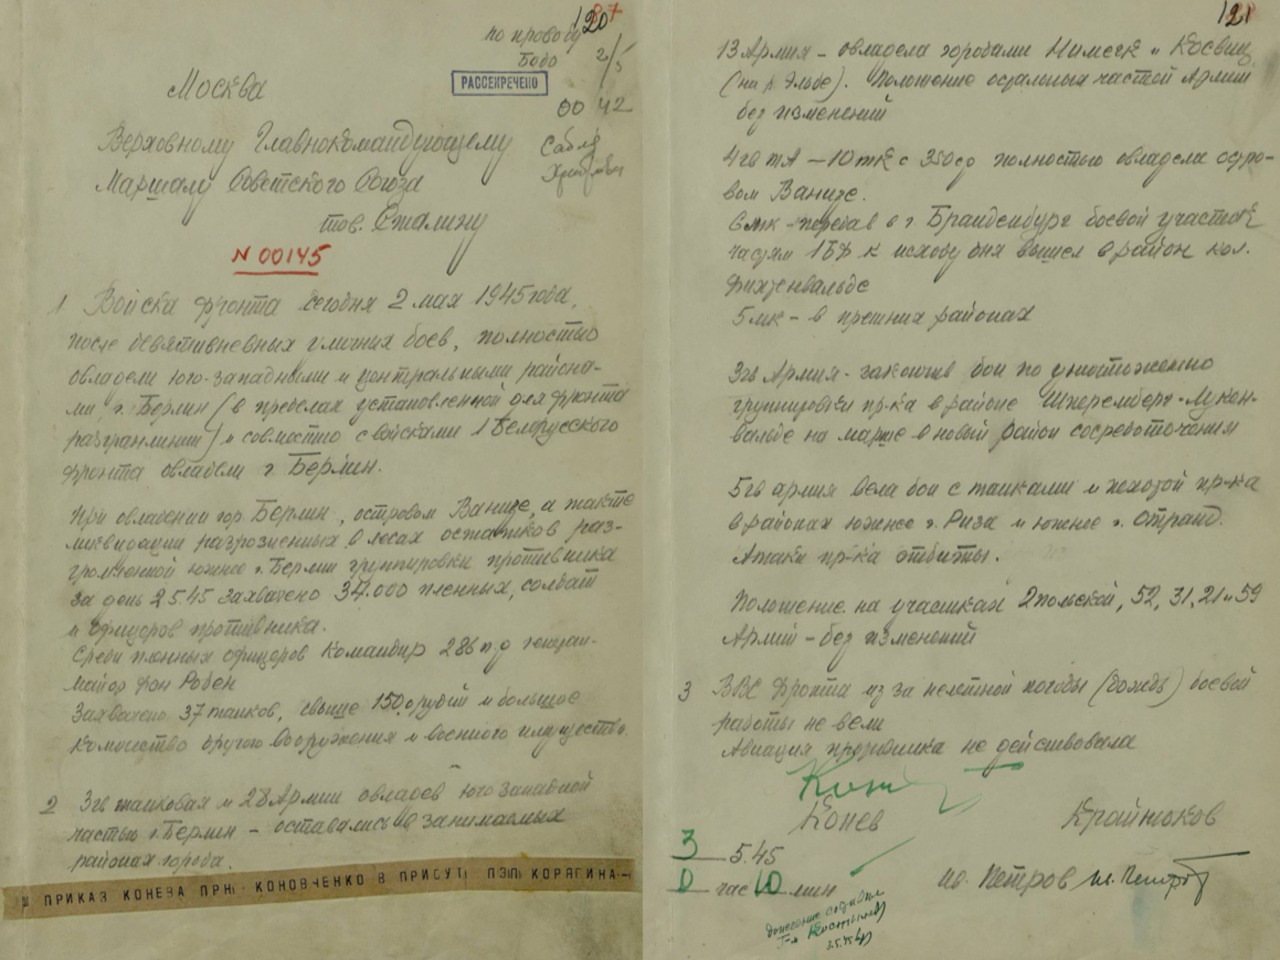 120
по проводу
Бодо
2/5
РАССЕКРЕЧЕНО
00 42
Москва
Верховному Главнокомандующему
Маршалу Советского Союза
тов. Сталину
N 00145
1 Войска фронта сегодня 2 мая 1945 года,
после девятидневных уличных боев, полностью
овладели юго-западными и центральными района-
ми г. Берлин (в пределах установленной для фронта
разгранлинии) и совместно с войсками 1 Белорусского
фронта овладели г. Берлин.
При овладении гор. Берлин, островом Ванзее, а также
ликвидации в лесах остатков раз-
громленной южнее г. Берлин группировки противника
за день 2.5.45 захвачено 34.000 пленных, солдат
и офицеров противника.
Среди пленных офицеров командир 286 пд генерал-
майор фон Робен
Захвачено 37 танков, свыше 150 орудий и большое
количество другого вооружения и военного имущества.
2 3 гв танковая и 28 Армии овладев юго западной
частью г. Берлин – оставались в занимаемых
районах города.
ПРИКАЗ КОНЕВА ПРН КОНОВЧЕНКО В ПРИСУТ ПЭП КОРЯГИНА-
121
13 Армия – овладела городами Нимегк и Косвиг
(на р. Эльбе). Положение остальных частей Армии
без изменений
4 гв ТА – 10 тк с 350 сд полностью овладела остро-
вом Ванзее.
6 мк – передав в г. Бранденбург боевой участок
частям 1 БФ к исходу дня вышел в район кол.
Фихтенвальде
5 мк – в прежних районах
3 гв Армия – закончив бои по уничтожению
группировки пр-ка в районе Шперенберг-Лукен-
вальде на марше в новый район сосредоточения
5 гв армия вела бои с танками и пехотой пр-ка
в районах южнее г. Риза и южнее г. Отранд.
Атаки пр-ка отбиты.
Положение на участках 2 польской, 52, 31, 21 и 59
Армий – без изменений
3 ВВС фронта из за нелетной погоды (дождь) боевой
работы не вели
Авиация противника не действовала
Конев
Крайнюков
3 5.45
0 час 10 мин
Петров
донесение
3.5.45